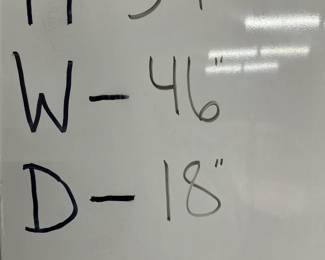 W - 46"
D - 18"